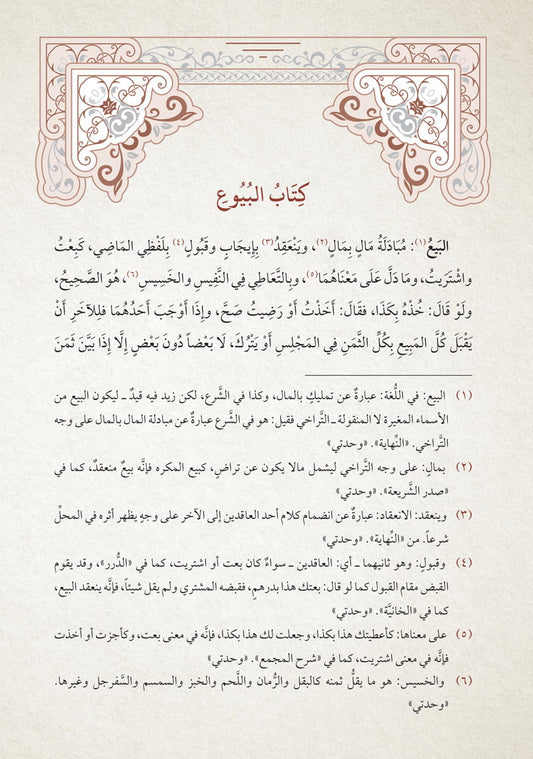 كِتَابُ البُيُوعِ
البَيْعُ(١): مُبَادَلَةُ مَالٍ بِمَالٍ(٢)، ويَنْعَقِدُ(٣) بِإِيجَابٍ وقَبُولٍ(٤) بِلَفْظَيِ المَاضِي، كَبِعْتُ
واشْتَرَيتُ، ومَا دَلَّ عَلَى مَعْنَاهُمَا(٥)، وبِالتَّعَاطِي فِي النَّفِيسِ والخَسِيسِ(٦)، هُوَ الصَّحِيحُ،
ولَوْ قَالَ: خُذْهُ بِكَذَا، فقَالَ: أَخَذْتُ أَوْ رَضِيتُ صَحَّ، وإِذَا أَوْجَبَ أَحَدُهُمَا فلِلآخَرِ أَنْ
يَقْبَلَ كُلَّ المَبِيعِ بِكُلِّ الثَّمَنِ فِي المَجْلِسِ أَوْ يَتْرُكَ، لَا بَعْضاً دُونَ بَعْضٍ إِلَّا إِذَا بَيَّنَ ثَمَنَ
(١) البيع: في اللُّغة: عبارةٌ عن تمليكٍ بالمال، وكذا في الشَّرع، لكن زيد فيه قيدٌ ـ ليكون البيع من
الأسماء المغيرة لا المنقولة ـ التَّراخي فقيل: هو في الشَّرع عبارةٌ عن مبادلة المال بالمال على وجه
التَّراخي. «النِّهاية». «وحدتي»
(٢) بمالٍ: على وجه التَّراخي ليشمل مالا يكون عن تراضٍ، كبيع المكره فإنَّه بيعٌ منعقدٌ، كما في
«صدر الشَّريعة». «وحدتي»
(٣) وينعقد: الانعقاد: عبارةٌ عن انضمام كلام أحد العاقدين إلى الآخر على وجهٍ يظهر أثره في المحلِّ
شرعاً. من «النِّهاية». «وحدتي»
(٤) وقبولٍ: وهو ثانيهما ـ أي: العاقدين ـ سواءٌ كان بعت أو اشتريت، كما في «الدُّرر»، وقد يقوم
القبض مقام القبول كما لو قال: بعتك هذا بدرهمٍ، فقبضه المشتري ولم يقل شيئاً، فإنَّه ينعقد البيع،
كما في «الخانيَّة». «وحدتي»
(٥) على معناها: كأعطيتك هذا بكذا، وجعلت لك هذا بكذا، فإنَّه في معنى بعت، وكأجزت أو أخذت
فإنَّه في معنى اشتريت، كما في «شرح المجمع». «وحدتي»
(٦) والخسيس: هو ما يقلُّ ثمنه كالبقل والرُّمان واللَّحم والخبز والسمسم والسَّفرجل وغيرها.
«وحدتي»